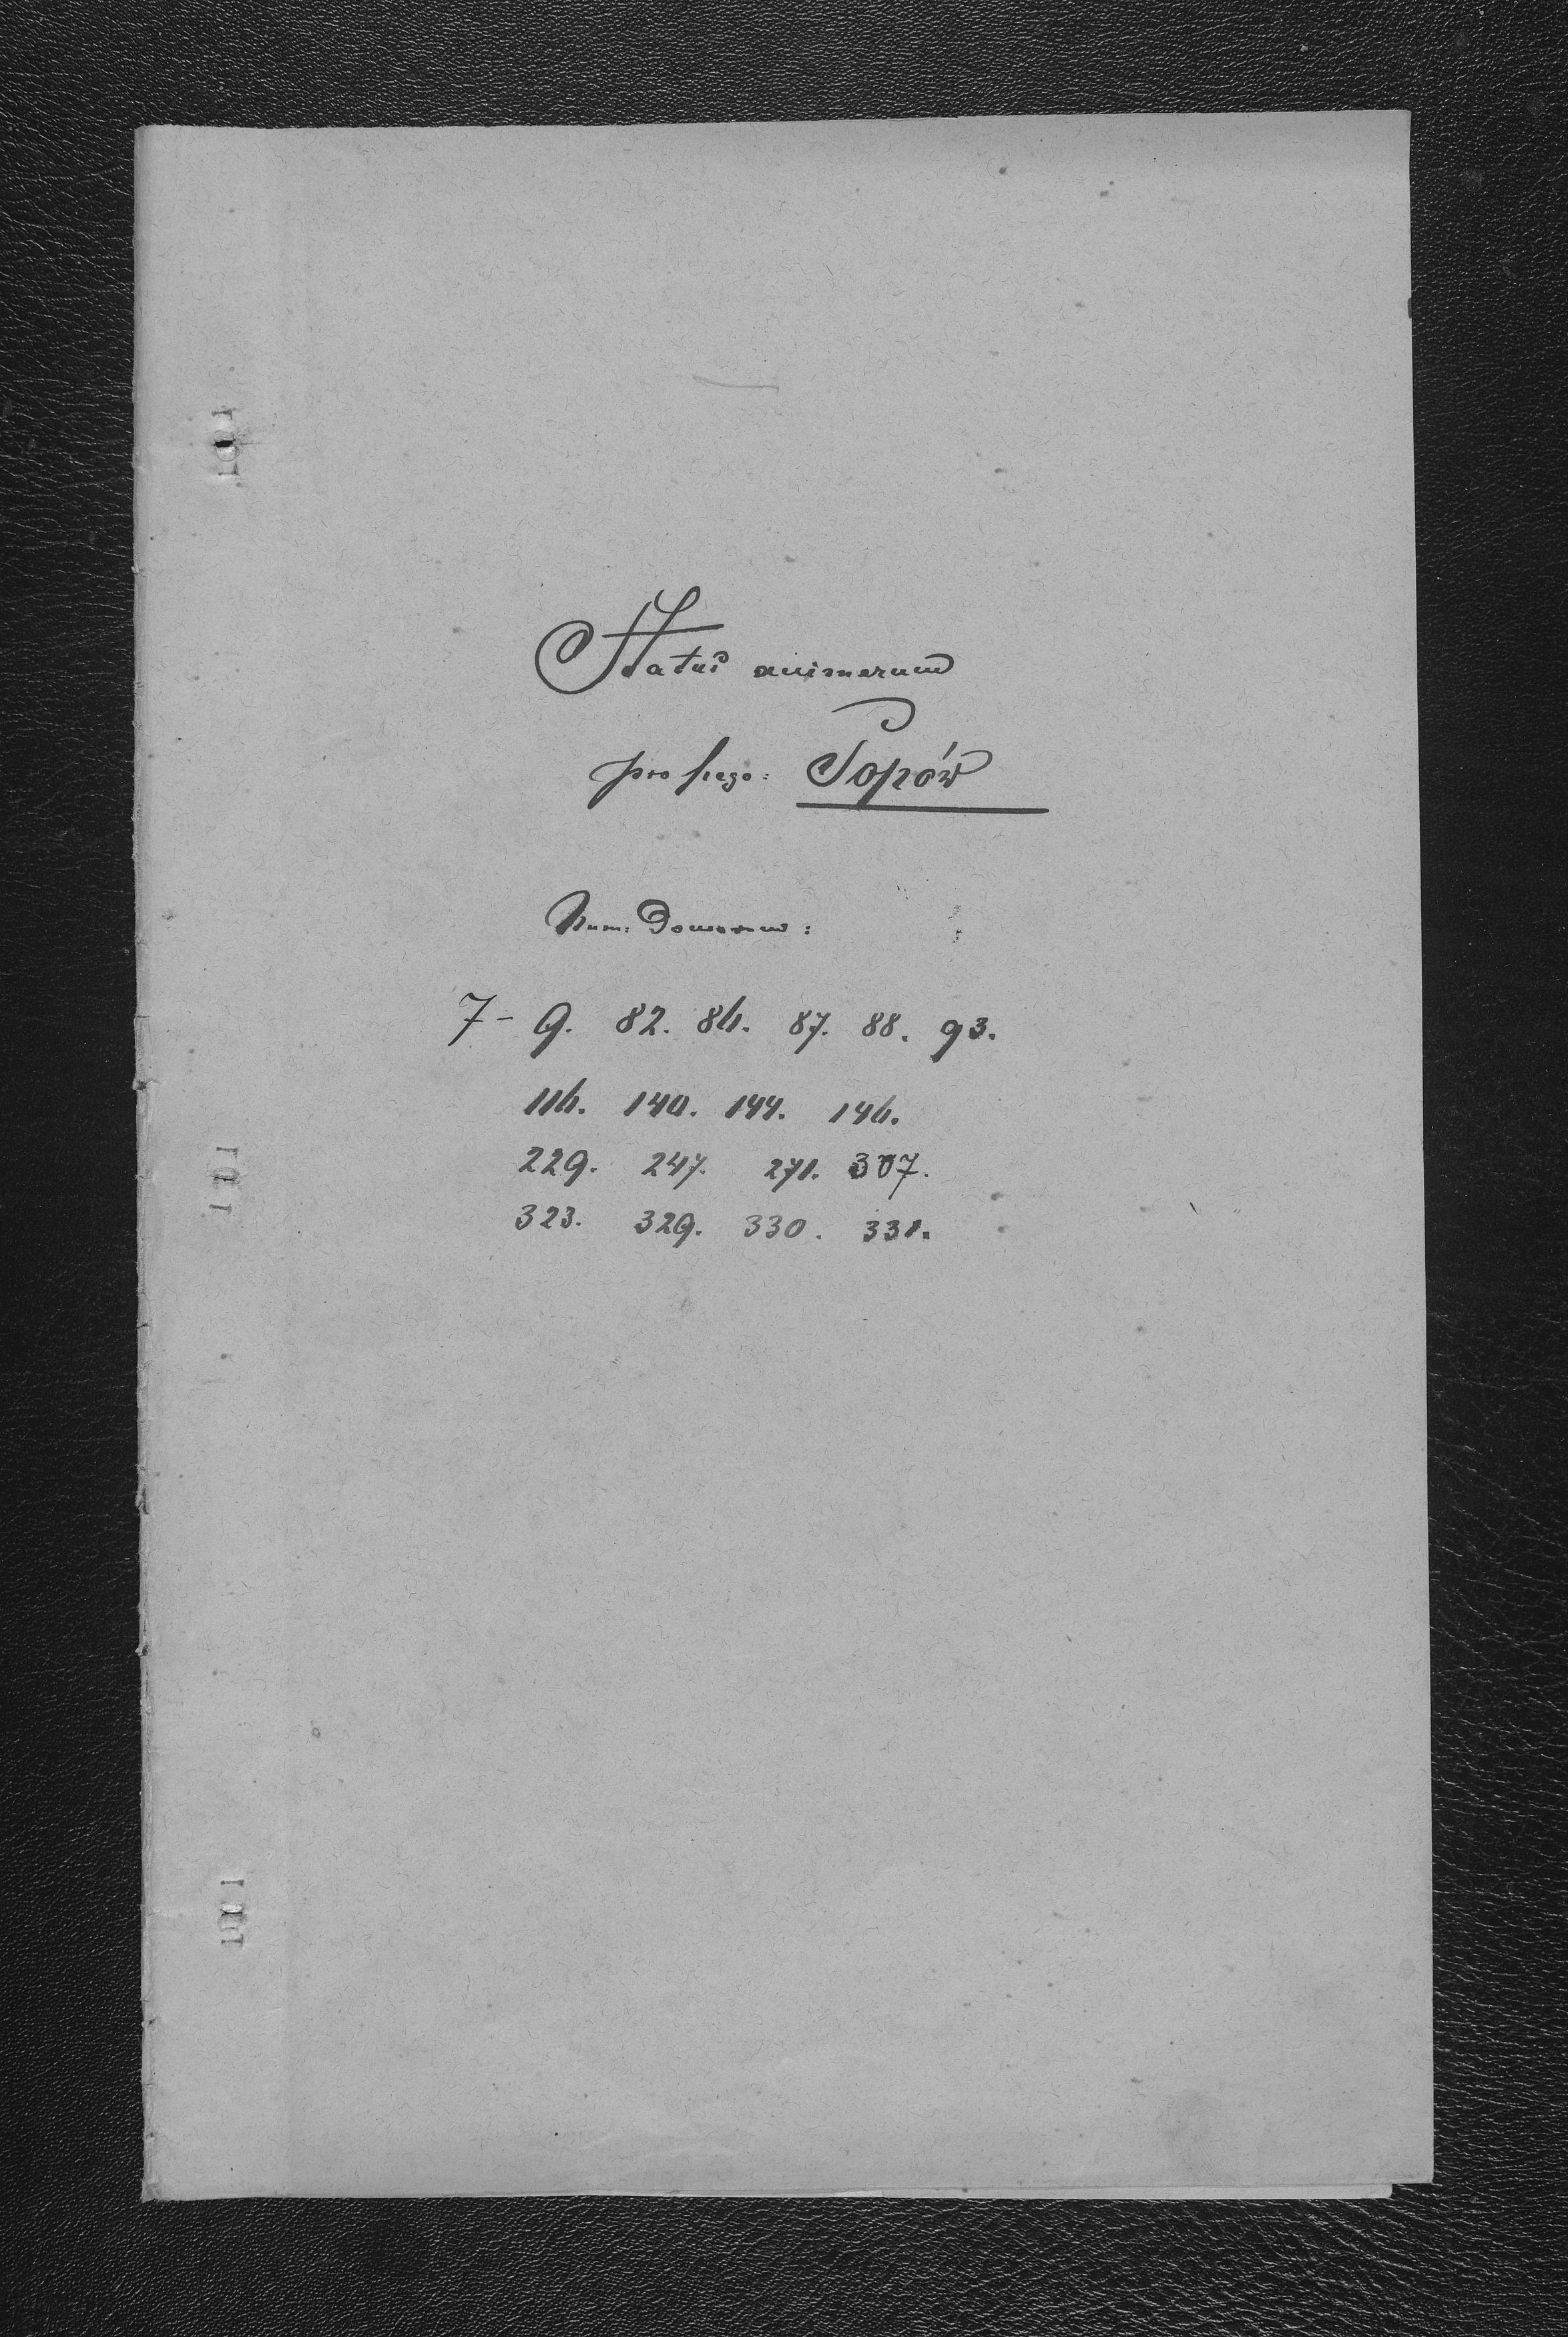 Status animarum
pro pago: Popów
Num: Domorum:
7- 9. 82. 86. 87. 88. 93.
116. 140. 144. 146.
229. 247. 271. 307.
323. 329. 330. 331.